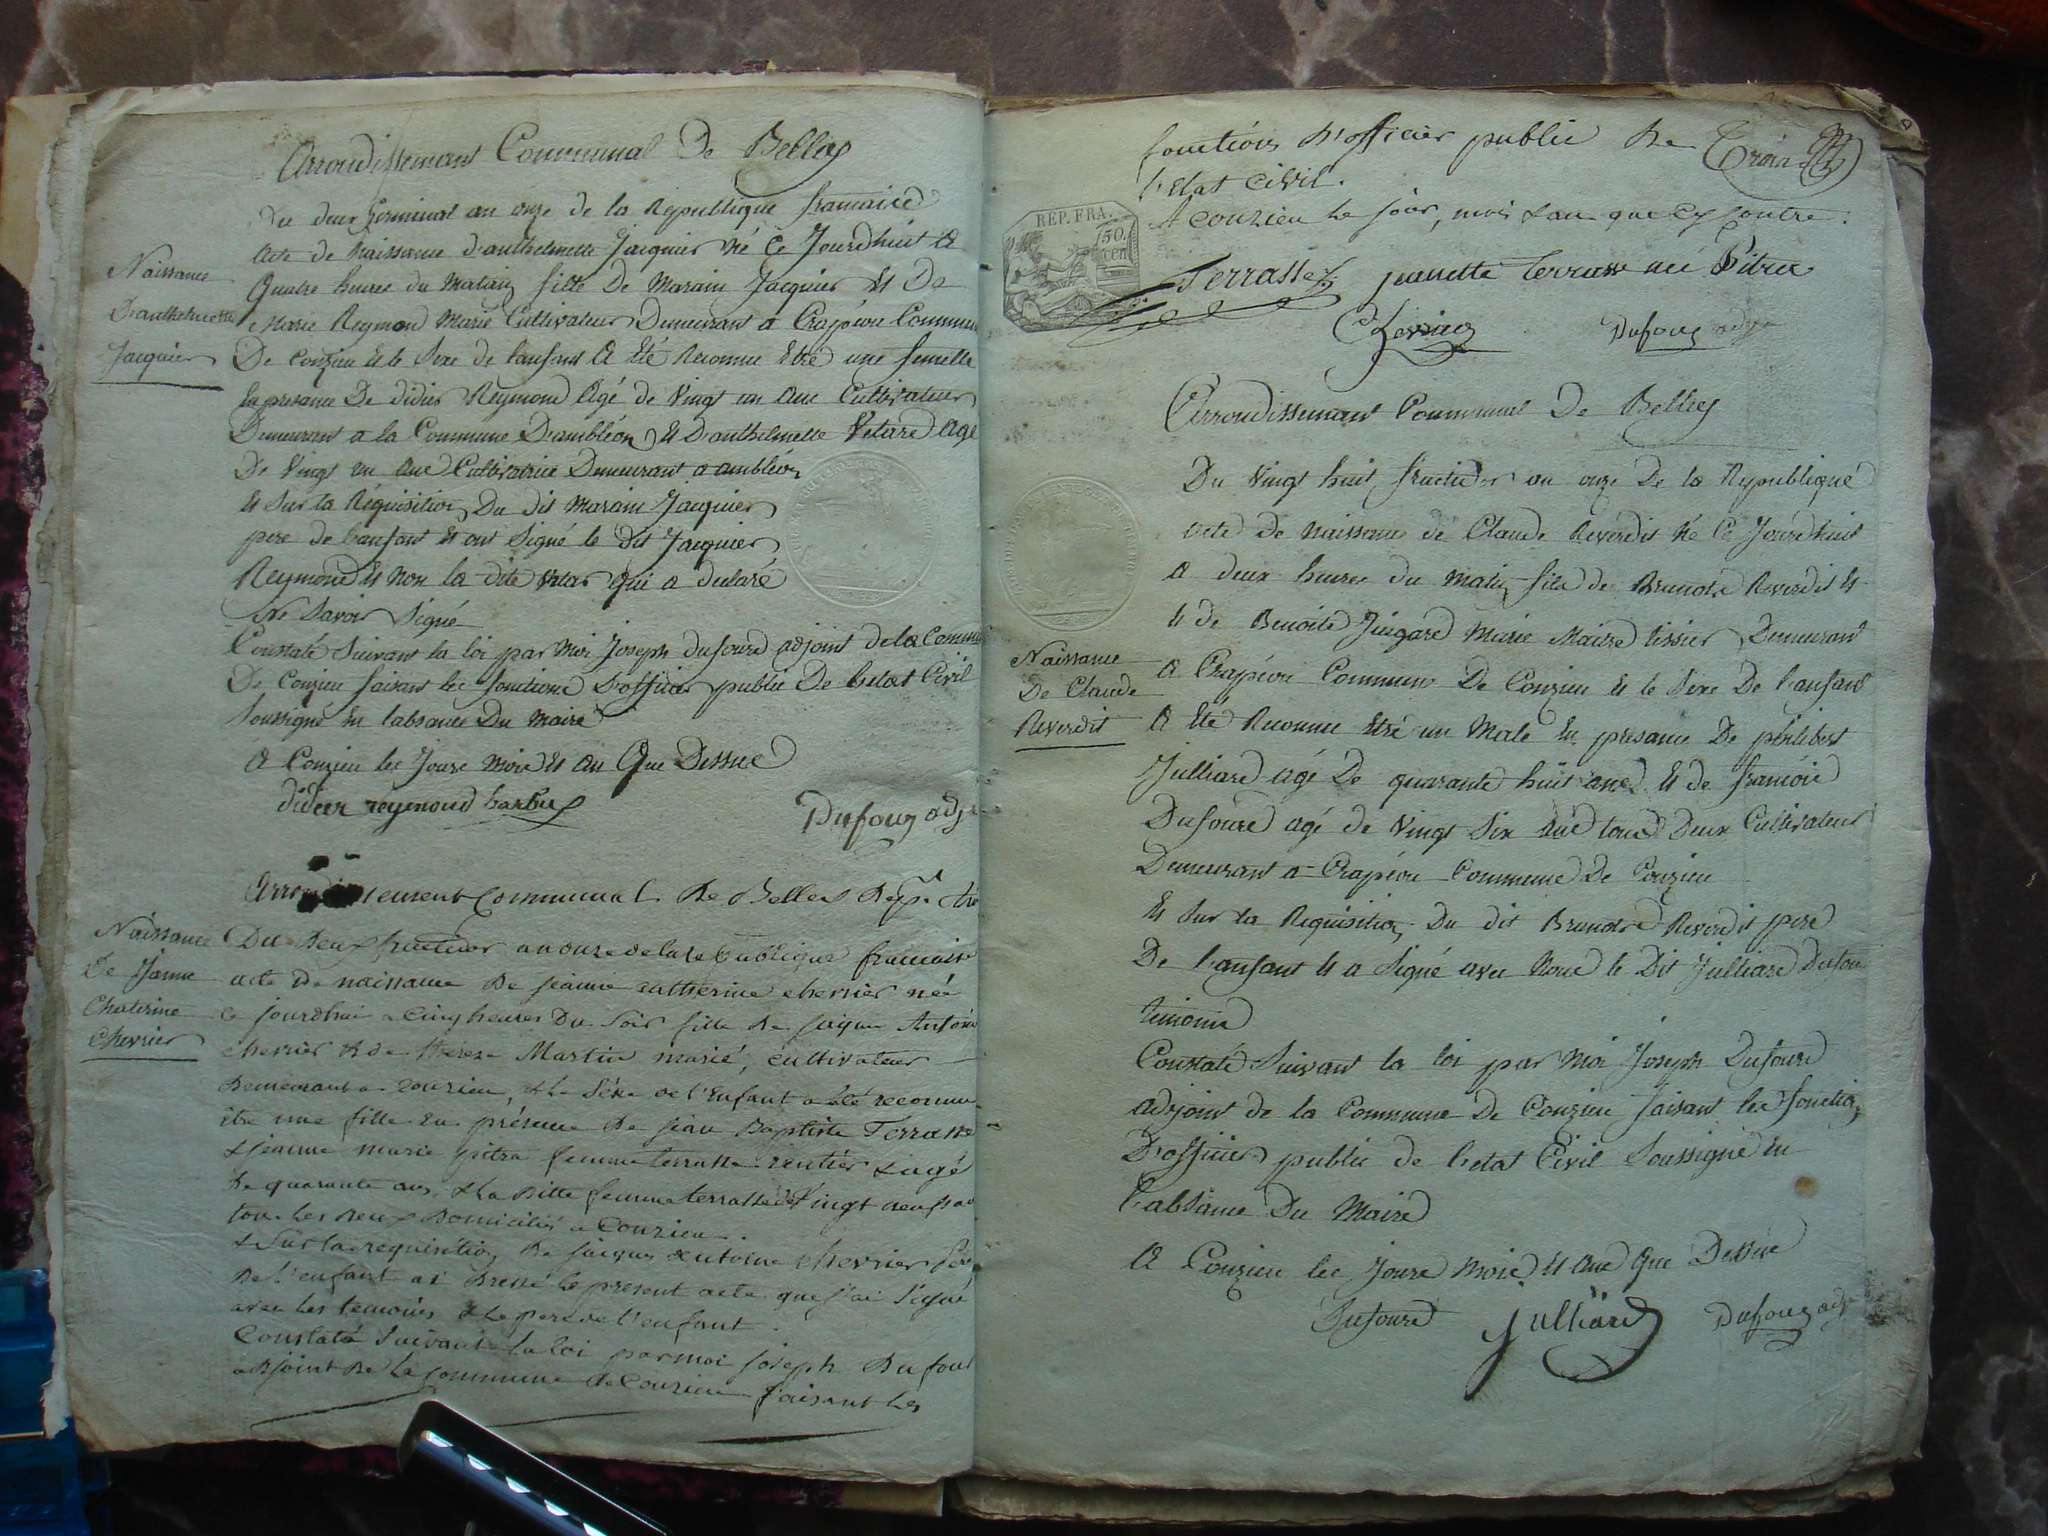 Arrondissement Communal De Belley
Du deux Germinal an onze de la Republique francaise
Acte de Naissance d'anthelmette Jacquier né Ce Jourdhuit a
Naissance
D'anthelmette
Jacquier
Quatre heures du Matain fille De Marain Jacquier Et De
Marie Reymond Marié Cultivateur Demeurant a Crapéou Commune
De Conzieu Et le Sexe de lanfant a Eté Reconnue Etre une femelle
En presance De didier Reymond Agé de Vingt un ans Cultivateur
Demeurant a la Commune D'ambléon Et D'anthelmette Vetard Agé
De Vingt un ans Cultivatrice Demeurant a ambléon
Et Sur la Réquisition Du dit Marain Jacquier
pere de lanfant Et ont Signé le dit Jacquier
Reymond Et Non la dite Vetar qui a declaré
Ne Savoir Signé
Constaté Suivant la loi par Moi Joseph dufourd adjoint de la Commune
De Conzieu faisant les fonctions D'officier public De letat Civil
Soussigné En labsance Du Maire
A Conzieu les Jours Mois Et an Que Dessus
didier reymond barbier
Dufour adj
Arrondissement Communal De Belley
Naissance
De Janne
Chaterine
Chevrier
Du Deux fructidor an onze de la republique francaise
acte de naissance De jeanne catherine chevrier née
ce jourdhui a cinq heures Du Soir fille De jaque Antoine
chevrier & de therese Martin marié, cultivateur
Demeurant a conzieu, & le Séxe de l'enfant a été reconnu
être une fille En présence De jean Baptiste Terrasse
& jeanne marie pitra femme terrasse rentier & agé
De quarante ans, & la Ditte femme terrasse de Vingt neuf ans
tou les Deux Domiciliés a Conzieu.
& Sur la requisition De jacques antoine chevrier Pere
De l'enfant ai Dressé le present acte que j'ai Signé
avec les temoins & le pere de l'enfant.
Constaté Suivant la loi par moi joseph Dufour
adjoint De la commune de Conzieu faisant les
fonctions D'officier public De
l'Etat civil.
Troix
A conzieu le jour, mois & an que cy contre.
REP. FRA.
50.
cen
Terrasse jeanette terrasse née Pitra
Chevrier Dufour adj
Arrondissement Communal De Belley
Du Vingt huit fructidor an onze De la Republique
acte De naissance de Claude Reverdit Né Ce Jourdhuit
a deux heures du matin fils de Reverdit Et
Et de Benoite Marié Maitre tissier Demeurant
Naissance
De Claude
Reverdit
A Crapéou Commune De Conzieu Et le Sexe De l'anfant
A Eté Reconnu Etré un Male En presance De philibert
Julliard agé De quarante huit ans Et de francois
Dufourd agé de Vingt Six ans tous Deux Cultivateur
Demeurant a Crapéou Commune De Conzieu
Et Sur la Requisition Du dit Reverdit pere
De l'anfant Et a Signé avec Nous le Dit Julliard Dufour
temoins
Constaté Suivant la loi par Moi Joseph Dufourd
adjoint de la Commune De Conzieu faisant les fonction
D'officier public de letat Civil Soussigné En
l'absance Du Maire
A Conzieu les Jours Mois Et ans Que Dessus
Dufourd Julliard Dufour adj